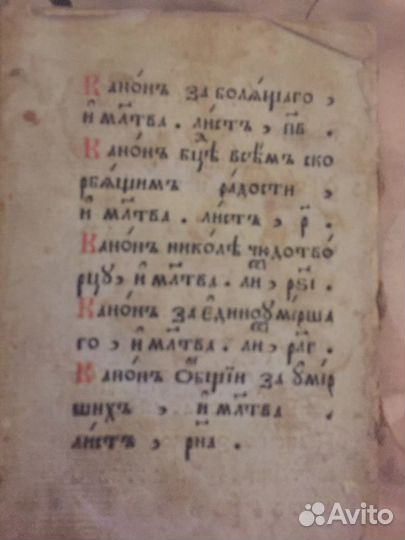 Кано́нъ за боля́щаго ,
и҆ мл҃тва . ли́стъ , п҃в .
Кано́нъ бц҃ѣ всѣ́мъ ско
рбя́щимъ ра́дости ,
и҆ мл҃тва . ли́стъ , р҃ .
Кано́нъ нико́лѣ чюдотво́
рцу , и҆ мл҃тва . ли , р҃ѕі .
Кано́нъ за є҆диноуме́рша
го , и҆ мл҃тва . ли ,
Кано́нъ Ѻ҆́бщїи за уме́р
шихъ , и҆ мл҃тва .
ли́стъ , р҃на .
Avito